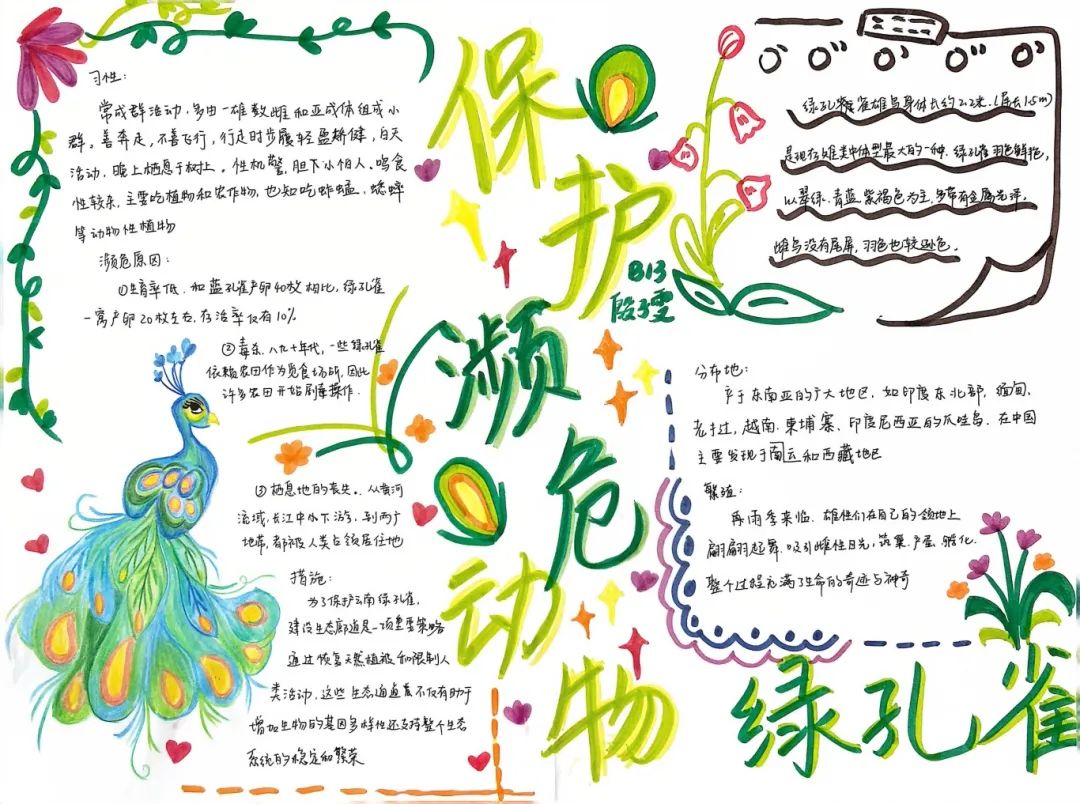 保护濒危动物
绿孔雀
B13
段子雯
习性:
常成群活动,多由一雄数雌和亚成体组成小
群。善奔走,不善飞行,行走时步履轻盈矫健,白天
活动,晚上栖息于树上。性机警,胆下小怕人。鸣食
性较杂,主要吃植物和农作物,也知吃蚱蜢,蟋蟀
等动物性植物
濒危原因:
①生育率低.和蓝孔雀产卵40枚相比,绿孔雀
一窝产卵20枚左右,存活率仅有10%
②毒杀.八九十年代,一些绿孔雀
依赖农田作为觅食场所,因此
许多农田开始剧毒操作.
③栖息地的丧失。从黄河
流域,长江中下游,到两广
地带,都被人类占领居住地
措施:
为了保护云南绿孔雀,
建设生态廊道是一项重要策略
通过恢复天然植被和限制人
类活动,这些生态通道不仅有助于
增加生物的基因多样性还支持整个生态
系统的稳定和繁荣
绿孔雀雄鸟身体长约2.2米.(尾长1.5m)
是现存雉类中体型最大的一种.绿孔雀羽色鲜艳,
以翠绿.青蓝.紫褐色为主,多带有金属光泽.
雌鸟没有尾屏,羽色也较逊色。
分布地:
产于东南亚的广大地区,如印度东北部,缅甸,
老挝,越南.柬埔寨.印度尼西亚的爪哇岛.在中国
主要发现于南云和西藏地区
繁殖:
再雨季来临.雄性们在自己的领地上
翩翩起舞.吸引雌性目光,筑巢.产蛋.孵化.
整个过程充满了生命的奇迹与神奇